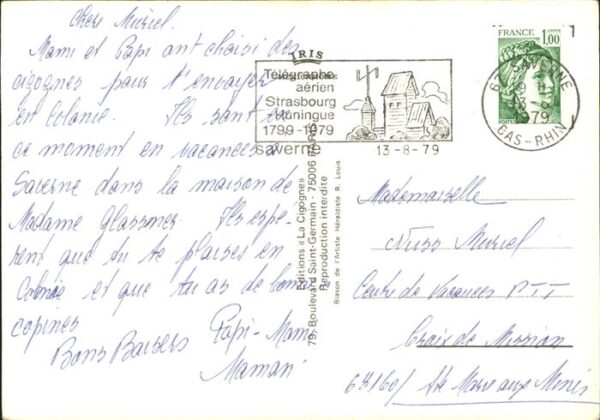 Chère Muriel.
Mami et Papi ont choisi des
cigognes pour t'envoyer
en Colonie. Ils sont en
ce moment en vacances à
Saverne dans la maison de
Madame Glassmer Ils espè-
rent que tu te plaises en
Colonie et que tu as de bonnes
copines
Bons Baisers Papi-Mami
Maman
IRIS
Télégraphe
aérien
Strasbourg
Huningue
1799-1979
saverne
13-8-79
FRANCE
1,00
POSTES
67 SAVERNE
13-8
79
BAS-RHIN
Editions «La Cigogne»
79, Boulevard Saint-Germain - 75006 PARIS
Reproduction interdite
Blason de l'Artiste Héraldiste R. Louis
Mademoiselle
Nuss Muriel
Centre de Vacances PTT
Croix de Mission
68160/ Ste Marie aux Mines